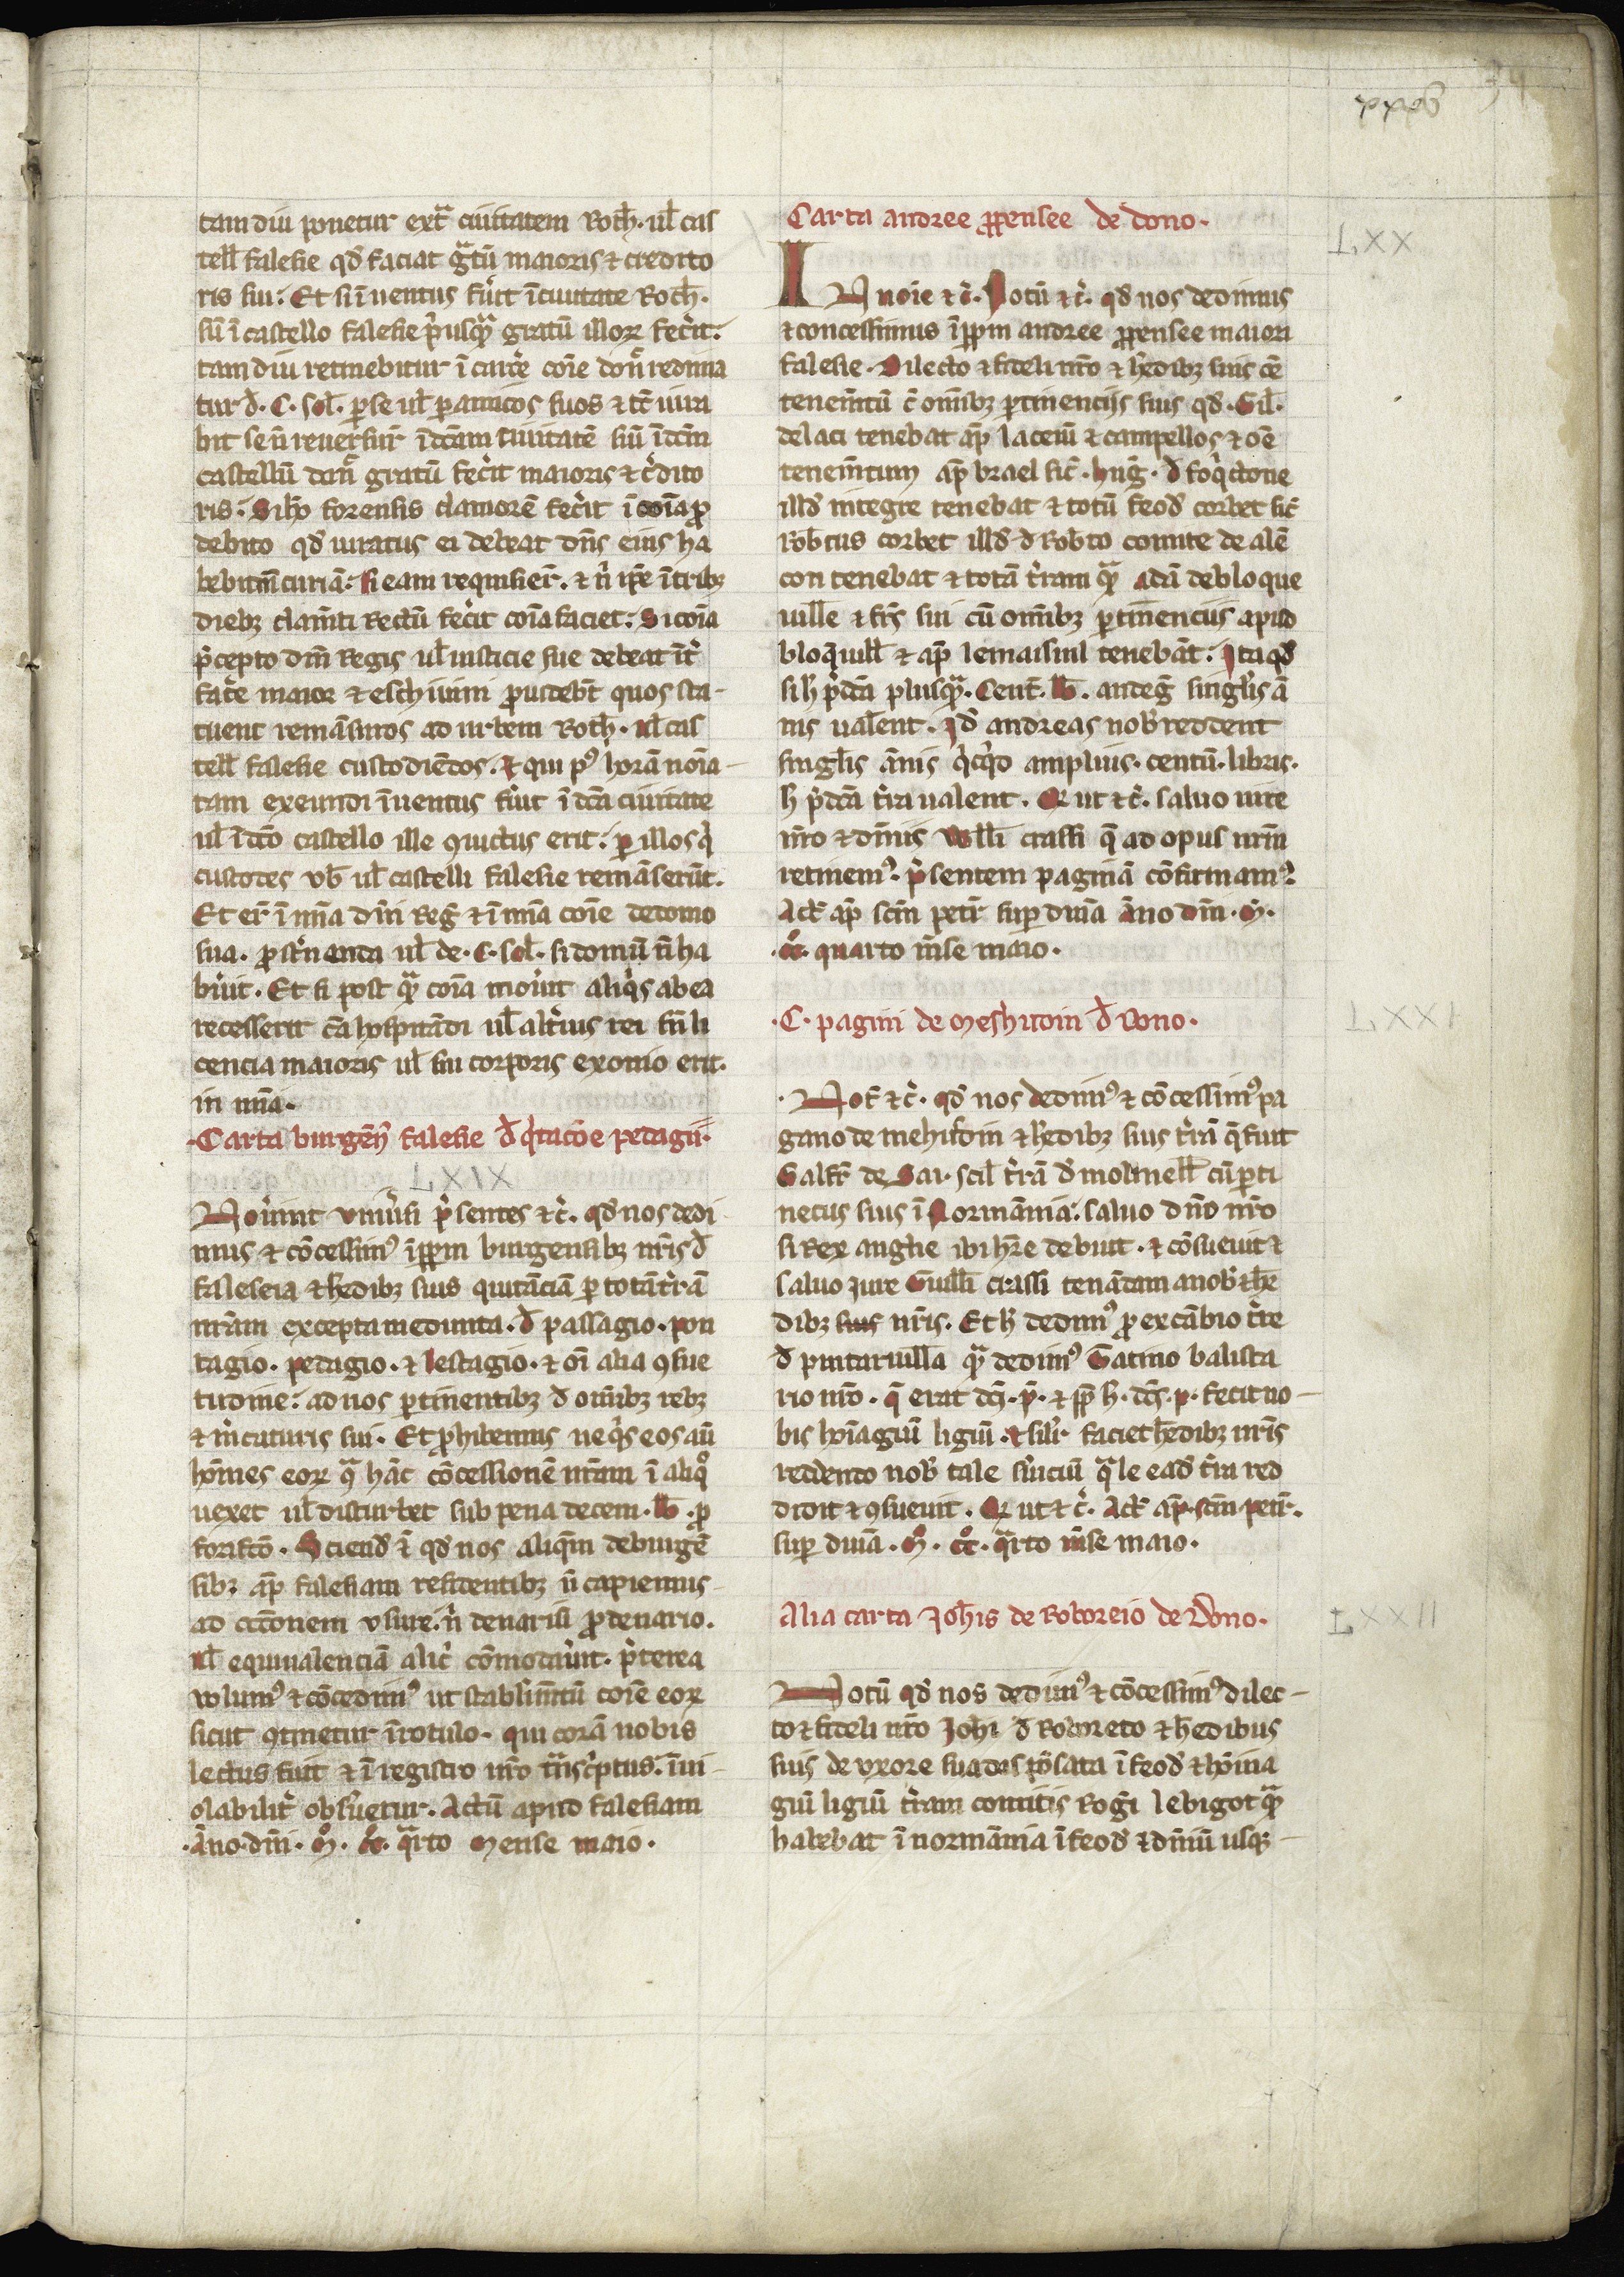 34
xxxv
tam diu ponetur ext̃ ciuitatem Roth̃. ul̃ cas
tell̃ falesie qđ faciat g̃tũ maioris ⁊ credito
ris sui. Et si ĩuentus fũit ĩ ciuitate Roth̃.
siũ ĩ castello falesie p̃usq̃ gratũ illoꝝ fec̃it.
tam diu retinebitur ĩ carc̃e cõie don̾ redima
tur đ. C. sol̃. ꝑ se ul̃ ꝑ amicos suos ⁊ tc̃ iura
bit se ñ reuersur̃ ĩ dc̃am ciuitatẽ siũ ĩ dc̃m
castellũ don̾ gratũ fec̃it maioris ⁊ c̃dito
ris. Si ho forensis clamorẽ fec̃it ĩ cõia ꝓ
debito qđ iuratus ei debeat dñs eius ha
bebit curiã. si eam requisier̃. ⁊ ñ ip̃e ĩ tribꝫ
diebꝫ clam̃ti Rectũ fec̃it cõia faciet. Si cõia
p̃cepto dñi Regis ul̃ iusticie sue debeat ĩt̃
fac̃e maior ⁊ escheuini ꝓuidebt̃ quos sta-
tuent remãsuros ad urbem Roth̃. ul̃ cas
tell̃ falesie custodiẽdos. ⁊ qui p9 horã nõia-
tam exeundi ĩuentus fũit ĩ dc̃a ciuitate
ul̃ ĩ dc̃o castello ille ꝯuictus erit. ꝑ illos q̃
custodes urb̃ ul̃ castelli falesie remãserũt.
Et er̃ ĩ mĩa dñi Reg̃ ⁊ ĩ mĩa cõie de domo
sua. ꝓst̃nanda ul̃ de. C. sol̃. si domũ ñ ha
bũit. Et si post q̃ cõia mou̾it aliq̃s ab ea
recesserit cã hospitãdi ul̃ alt̃ius rei sñ li
cencia maioris ul̃ sui corporis exonio erit.
in mĩa.
.Carta burgẽñ falesie đ q̃tac̃oe pedagii.
LXIX
Nou̾int uniũsi p̃sentes ⁊ c̃. qđ nos dedi
mus ⁊ cõcessim9 ĩꝑꝑm burgensibꝫ nr̃is đ
faleseia ⁊ hedibꝫ suis quitãciã ꝑ totã t̃rã
nr̃am excepta medunta. đ passagio. pon
tagio. pedagio. ⁊ lestagio. ⁊ oĩ alia ꝯsue
tudine. ad nos ꝑtinentibꝫ đ oĩnibꝫ rebꝫ
⁊ m̃caturis sui. Et ꝓhibemus ne q̃s eos aũ
hoĩnes eoꝝ ꝯ̃ hãc cõcessionẽ nr̃am ĩ aliq̊
uexet ul̃ disturbet sub pena decem. lb̃. ꝓ
forifc̃o. Sciend̃ ẽ qđ nos aliq̃m de burgẽ
sibꝫ ap̃ falesiam residentibꝫ ñ capiemus
ad oc̃onem usure. ñ denariũ ꝓ denario.
ul̃ equiualenciã alic̃ cõmodaũit. p̃terea
volum9 ⁊ cõcedim9 ut stabilim̃tũ cõie eoꝝ
sicut ꝯtinetur ĩ rotulo. qui corã nobis
lectus fuit ⁊ ĩ registro nr̃o t̃nsc̃ptus. ĩui-
olabilit̃ obs̃uetur. Actũ apud falesiam
.Ãno. dñi. M̊. cc̊. q̃rto Mense maio.
Carta andree ꝓpensee de dono.
LXX
IN noĩe ⁊ c̃. Notũ ⁊ c̃. qđ nos dedimus
⁊ concessimus ĩꝑꝑm andree ꝓpensee maiori
falesie. Dilecto ⁊ fideli nr̃o ⁊ hedibꝫ suis oẽ
tenem̃tũ c̃ omĩbꝫ ꝑtinencijs suis qđ. Gil̃.
de laci tenebat ap̃ laceiũ ⁊ campellos ⁊ oẽ
tenem̃tum ap̃ brael sic̃. hug̃. đ foq̃ctone
illđ integre tenebat ⁊ totũ feođ corbet sic̃
Rob̃tus corbet illđ đ Rob̃to comite de alẽ
con tenebat ⁊ totã t̃ram q̃ adã de bloque
uille ⁊ fr̃s sui cũ omĩbꝫ ꝑtinenciis apud
bloq̃uill̃ ⁊ ap̃ lemaisnil tenebãt. Ita qđ
si h̾ p̃dc̃a plusq̃. Cent̃. lb̃. andeg̃ singlĩs ã
nis ualent. Iđ andreas nob̃ reddent
singlĩs ãnis q̃cq̃d amplius. centũ. libris.
h̾ p̃dc̃a t̃ra ualent. Q̃ ut ⁊ c̃. saluo iure
nr̃o ⁊ dñiis Will̃i crassi q̃ ad opus nr̃m
retinem9. p̃sentem paginã cõfirmam9.
Act̃ ap̃ sc̃m petr̃ suꝑ diuã ãno dñi. M̊.
.cc̊. quarto m̃se maio.
.C. pagini de Meshudin đ Dono.
LXXI
.Not̃ ⁊ c̃. qđ nos dedim9 ⁊ cõcessim9 pa
gano de mehudin ⁊ hedibꝫ suis t̃rã q̃ fuit
Galfr̃ de Sai. scil̃ t̃rã đ molinell̃ cũ ꝑti
neciis suis ĩ Normãnia. saluo dño nr̃o
si Rex anglie ibi hr̃e debuit. ⁊ cõsueuit ⁊
saluo iure Guill̃i crassi tenẽdam a nob̃ ⁊ he
dibꝫ suis nr̃is. Et h̾ dedim9 ꝓ excãbio t̃re
đ pintaruilla q̃ dedim9 Gatino balista
rio nr̃o. q̃ erat dc̃i. p̃. ⁊ ꝓꝑ h̾. dc̃s. p. fecit no-
bis hoĩagiũ ligiũ. ⁊ silĩr faciet hedibꝫ nr̃is
reddendo nob̃ tale s̃uiciũ q̃le eađ t̃ra red
didit ⁊ ꝯsueuit. Q̃ ut ⁊ c̃. Act̃ ap̃. sc̃m petr̃.
suꝑ diuã. M̊. cc̊. q̃rto m̃se maio.
Alia carta Joh̃is de Roboreio de Dono.
LXXII
Notũ qđ nos dedim9 ⁊ cõcessim9 dilec-
to ⁊ fideli nr̃o Joh̃i đ Roboreto ⁊ hedibus
suis de uxore sua desponsata ĩ feođ ⁊ hoĩna
giũ ligiũ t̃ram comitis Rog̃i lebigot q̃
habebat ĩ normãnia ĩ feođ ⁊ dñiũ usqꝫ-